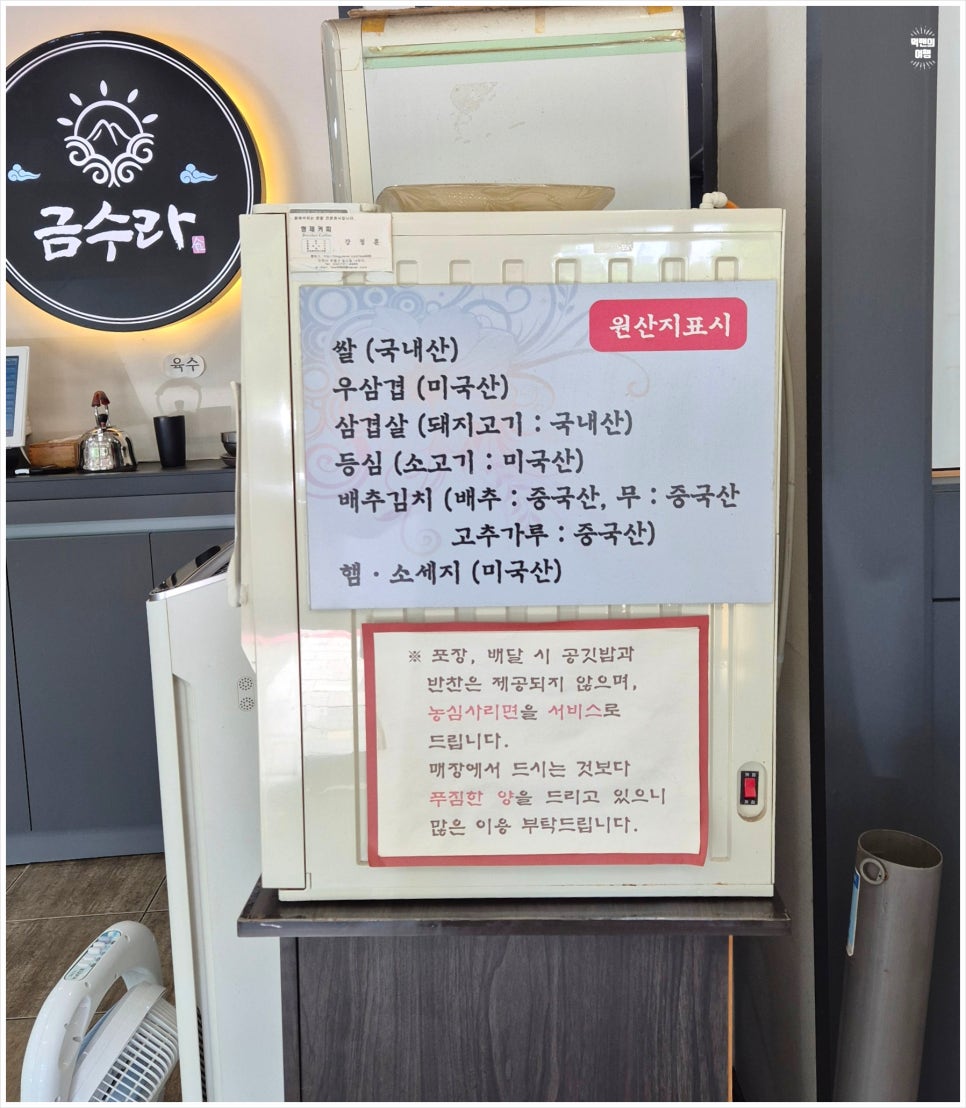 먹깨의
여행
금수라
육수
명재커피
강정훈
원산지표시
쌀 (국내산)
우삼겹 (미국산)
삼겹살 (돼지고기 : 국내산)
등심 (소고기 : 미국산)
배추김치 (배추 : 중국산, 무 : 중국산
고추가루 : 중국산)
햄 · 소세지 (미국산)
※ 포장, 배달 시 공깃밥과
반찬은 제공되지 않으며,
농심사리면을 서비스로
드립니다.
매장에서 드시는 것보다
푸짐한 양을 드리고 있으니
많은 이용 부탁드립니다.